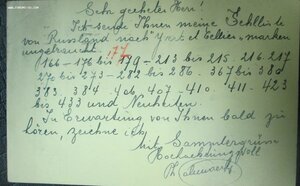 Sehr geehrter Herr!
Ich sende Ihnen meine Fehlliste
von "Russland nach" marken
17
166 - 176 bis 179 - 213 bis 215. 216. 217
270 bis 273 - 282 bis 286 - 367 bis 380
383. 384. 406. 407 - 410. 411. 423
bis, 433 und Neuheiten.
In Erwartung von Ihnen bald zu
hören, zeichne ich
Mit Sammlergrüss
Hochachtungsvoll